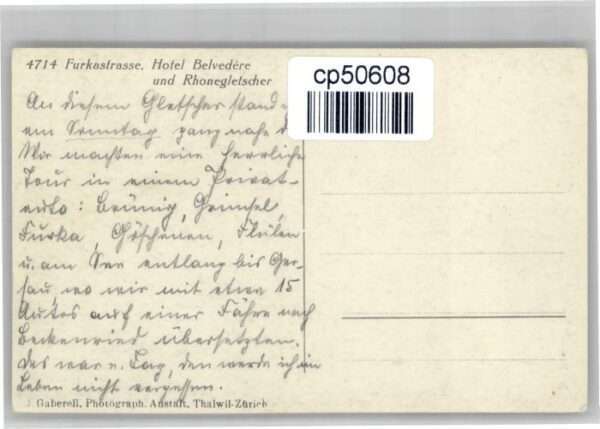 4714 Furkastrasse, Hotel Belvedère
und Rhonegletscher
cp50608
An diesem Gletscher stand
am Sonntag ganz nahe
Wir machten eine herrliche
Tour in einem Privat-
auto: Brünig, Grimsel,
Furka, Göschenen, Flülen
u. am See entlang bis Ger-
sau, wo wir mit etwa 15
Autos auf einer Fähre nach
Beckenried übersetzten.
Das war e. Tag, den werde ich im
Leben nicht vergessen.
J. Gaberell, Photograph. Anstalt, Thalwil-Zürich